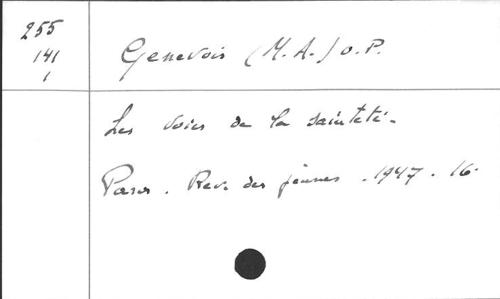 255
141
1
Genevois (M.A.) O.P.
Les voies de la sainteté.
Paris. Rev. des jeunes. 1947. 16.